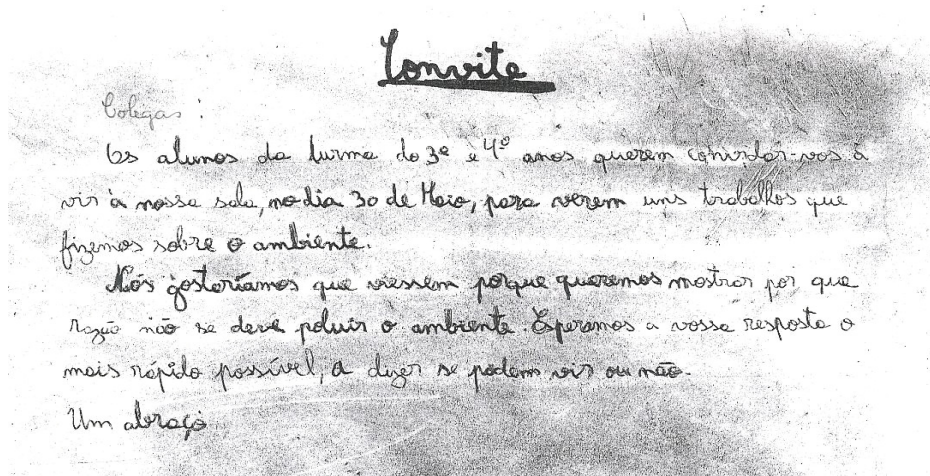 Convite
Colegas :
Os alunos da turma do 3º e 4º anos querem convidar-vos à
vir à nossa sala, no dia 30 de Maio, para verem uns trabalhos que
fizemos sobre o ambiente.
Nós gostaríamos que viessem porque queremos mostrar por que
razão não se deve poluir o ambiente. Esperamos a vossa resposta o
mais rápido possível, a dizer se podem vir ou não.
Um abraço